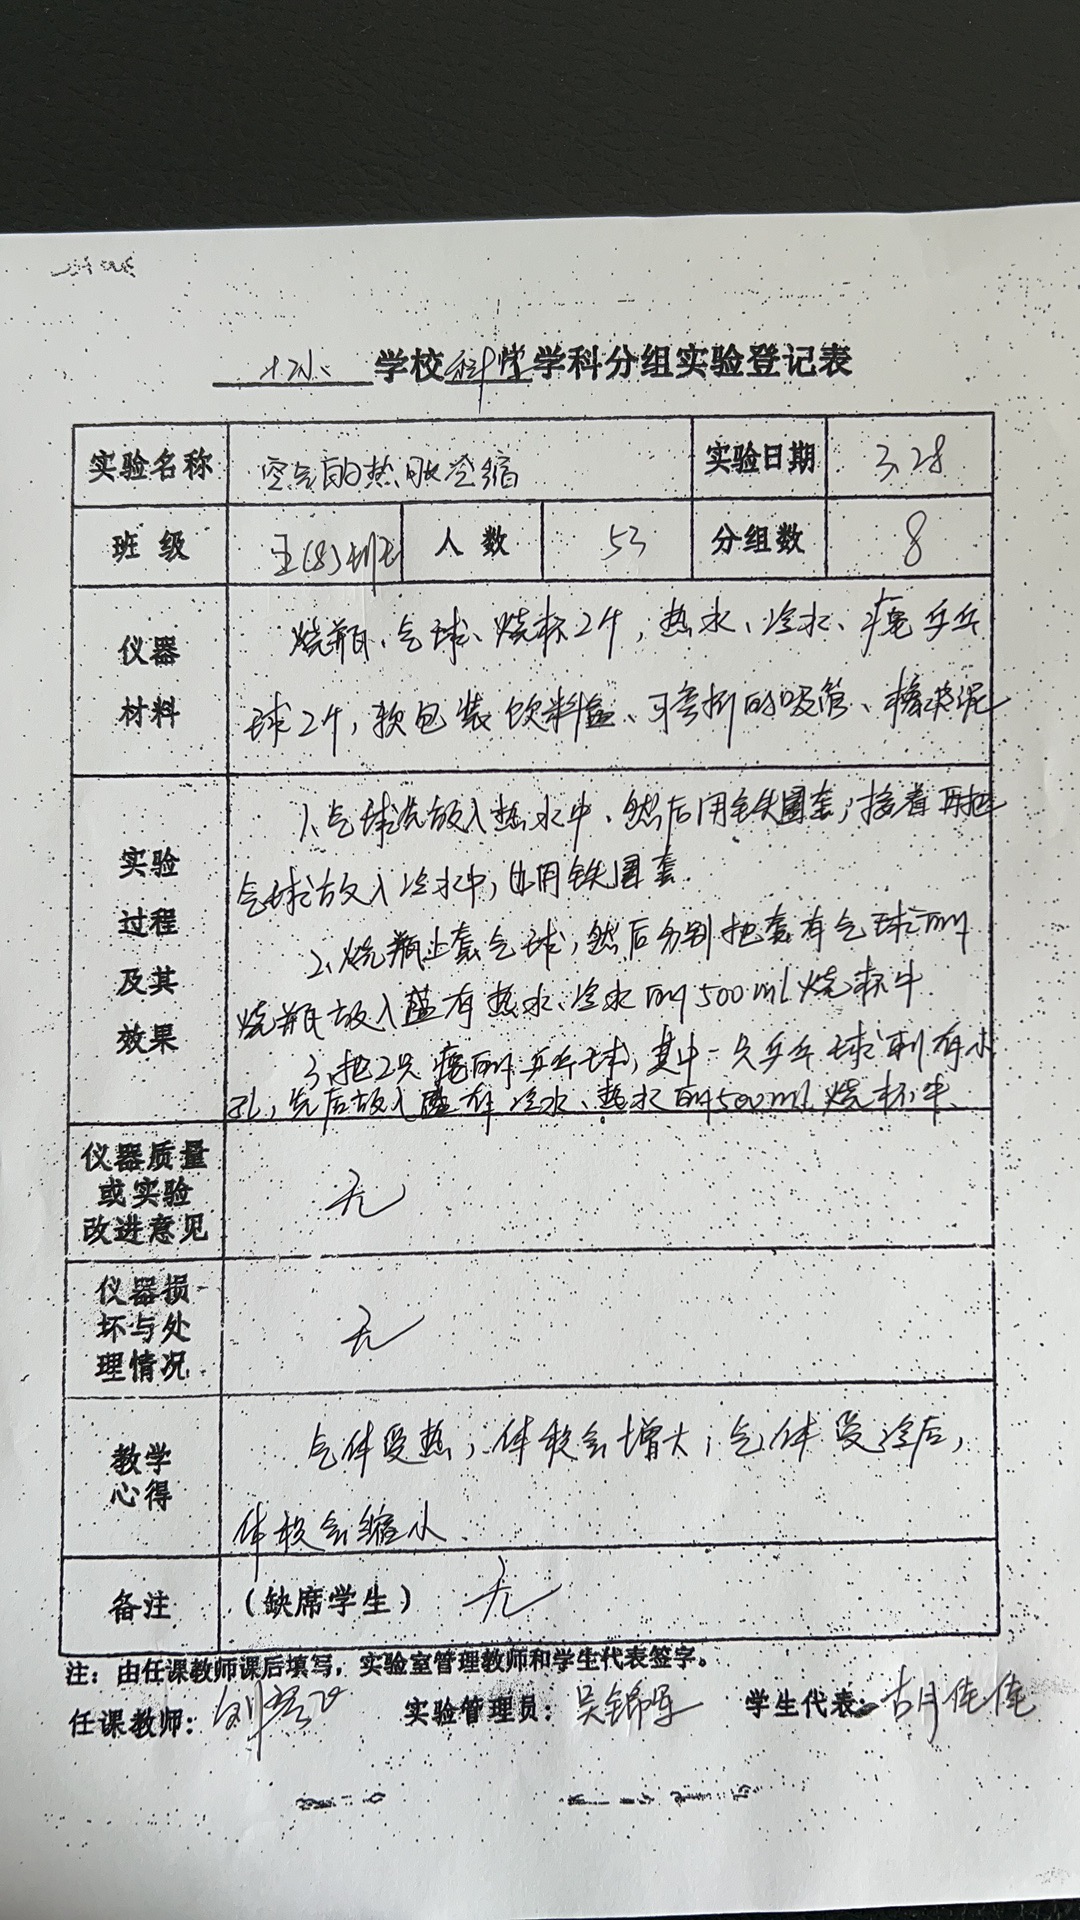 学校科学学科分组实验登记表
实验名称 空气的热胀冷缩 实验日期 3.28
班级 五(8)班 人数 53 分组数 8
仪器 烧瓶、气球、烧杯2个,热水、冷水、瘪乒乓
材料 球2个,软包装饮料盒、可弯折的吸管、橡皮泥
1、气球先放入热水中、然后用铁圈套;接着再把
实验 气球放入冷水中,也用铁圈套.
过程 2、烧瓶上套气球,然后分别把套有气球的
及其 烧瓶放入盛有热水、冷水的500ml烧杯中
效果 3、把2只瘪的乒乓球,其中一只乒乓球刺有小
孔,先后放入盛有冷水、热水的500ml烧杯中、
仪器质量
或实验 无
改进意见
仪器损
坏与处 无
理情况
教学 气体受热,体积会增大;气体受冷后,
心得 体积会缩小
备注 (缺席学生) 无
注:由任课教师课后填写,实验室管理教师和学生代表签字。
任课教师: 实验管理员:吴锦军 学生代表:胡佳佳